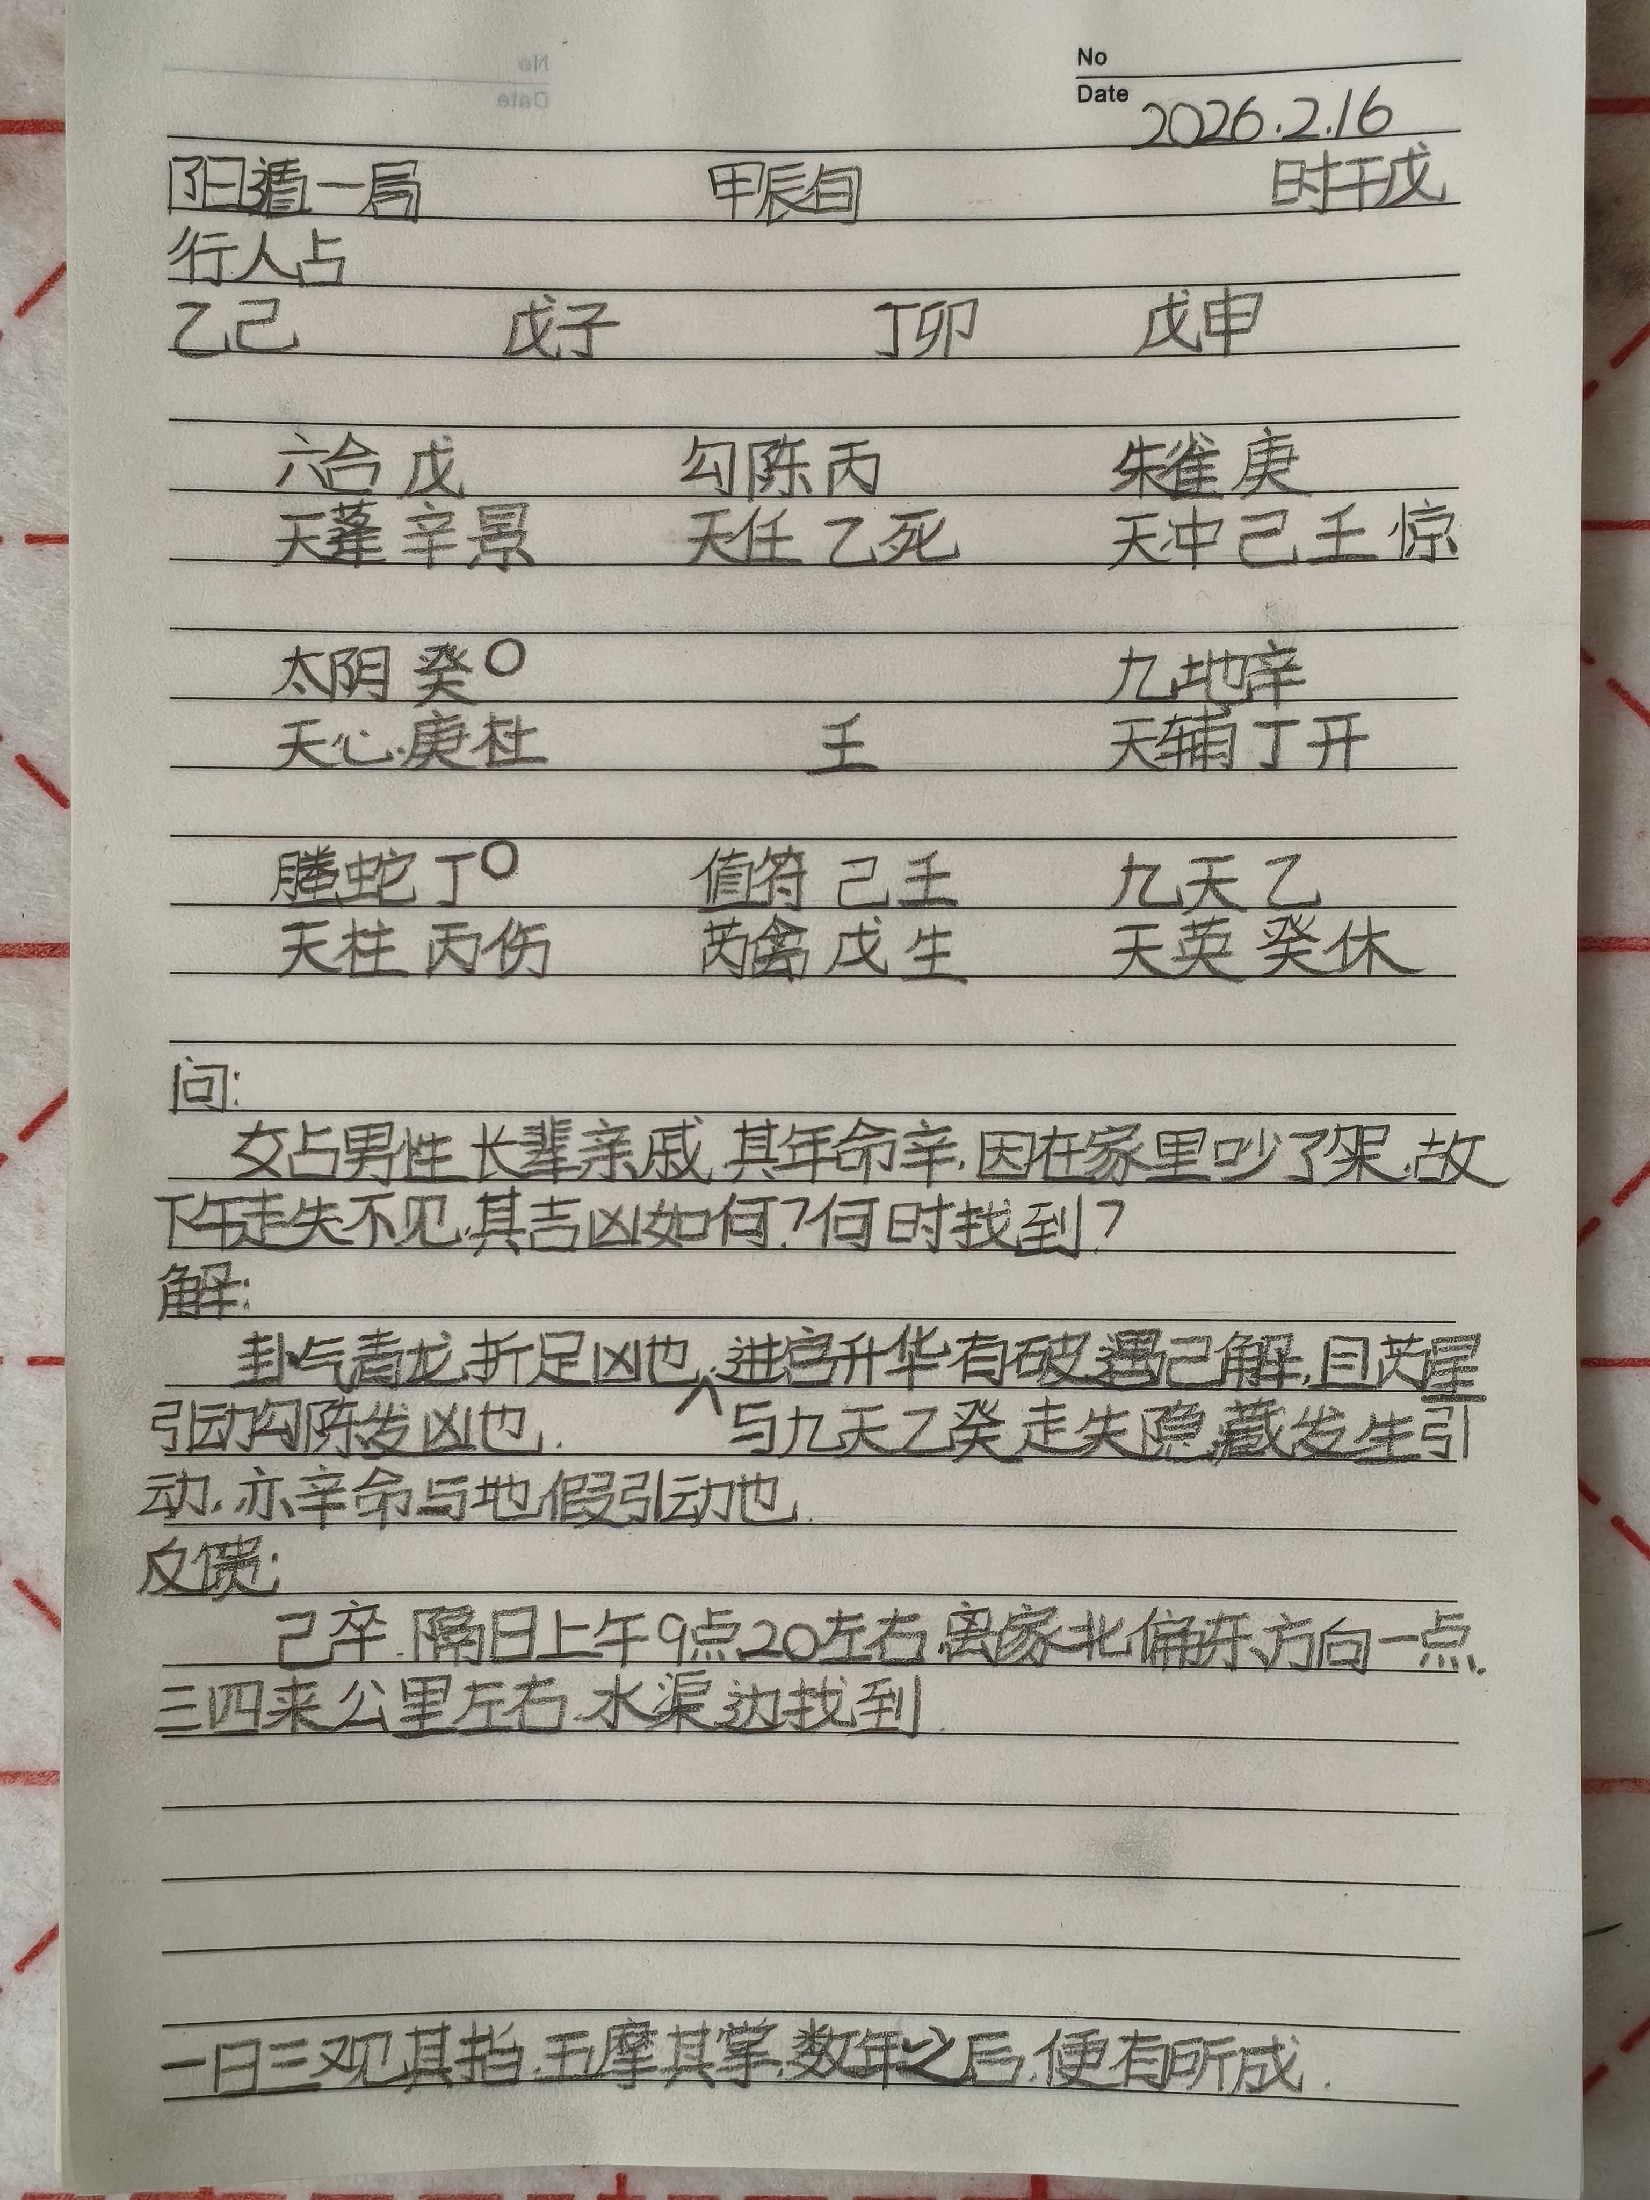 No
Date 2026.2.16
阳遁一局 甲辰旬 时干戊
行人占
乙己 戊子 丁卯 戊申
六合 戊 勾陈 丙 朱雀 庚
天蓬 辛 景 天任 乙 死 天冲 己 壬 惊
太阴 癸〇 九地 辛
天心 庚 杜 壬 天辅 丁 开
螣蛇 丁〇 值符 己 壬 九天 乙
天柱 丙 伤 芮禽 戊 生 天英 癸 休
问:
女占男性长辈亲戚,其年命辛,因在家里吵了架,故
下午走失不见,其吉凶如何?何时找到?
解:
卦气青龙折足凶也,进宫升华有破遇己解,且芮星
引动勾陈发凶也. 与九天乙癸走失隐藏发生引
动,亦辛命与地假引动也.
反馈:
己卒.隔日上午9点20左右,离家北偏东方向一点,
三四来公里左右,水渠边找到.
一日三观其指,五摩其掌,数年之后,便有所成.